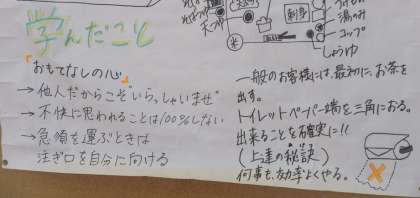 学んだこと
「おもてなしの心」
→他人だからこそ"いらっしゃいませ
→不快に思われることは100%しない
→急須を運ぶときは
注ぎ口を自分に向ける
刺身
湯のみ
コップ
しょうゆ
一般のお客様には、最初に、お茶を
出す。
トイレットペーパー端を三角におる。
出来ることを確実に!!
(上達の秘訣)
何事も、効率よくやる。